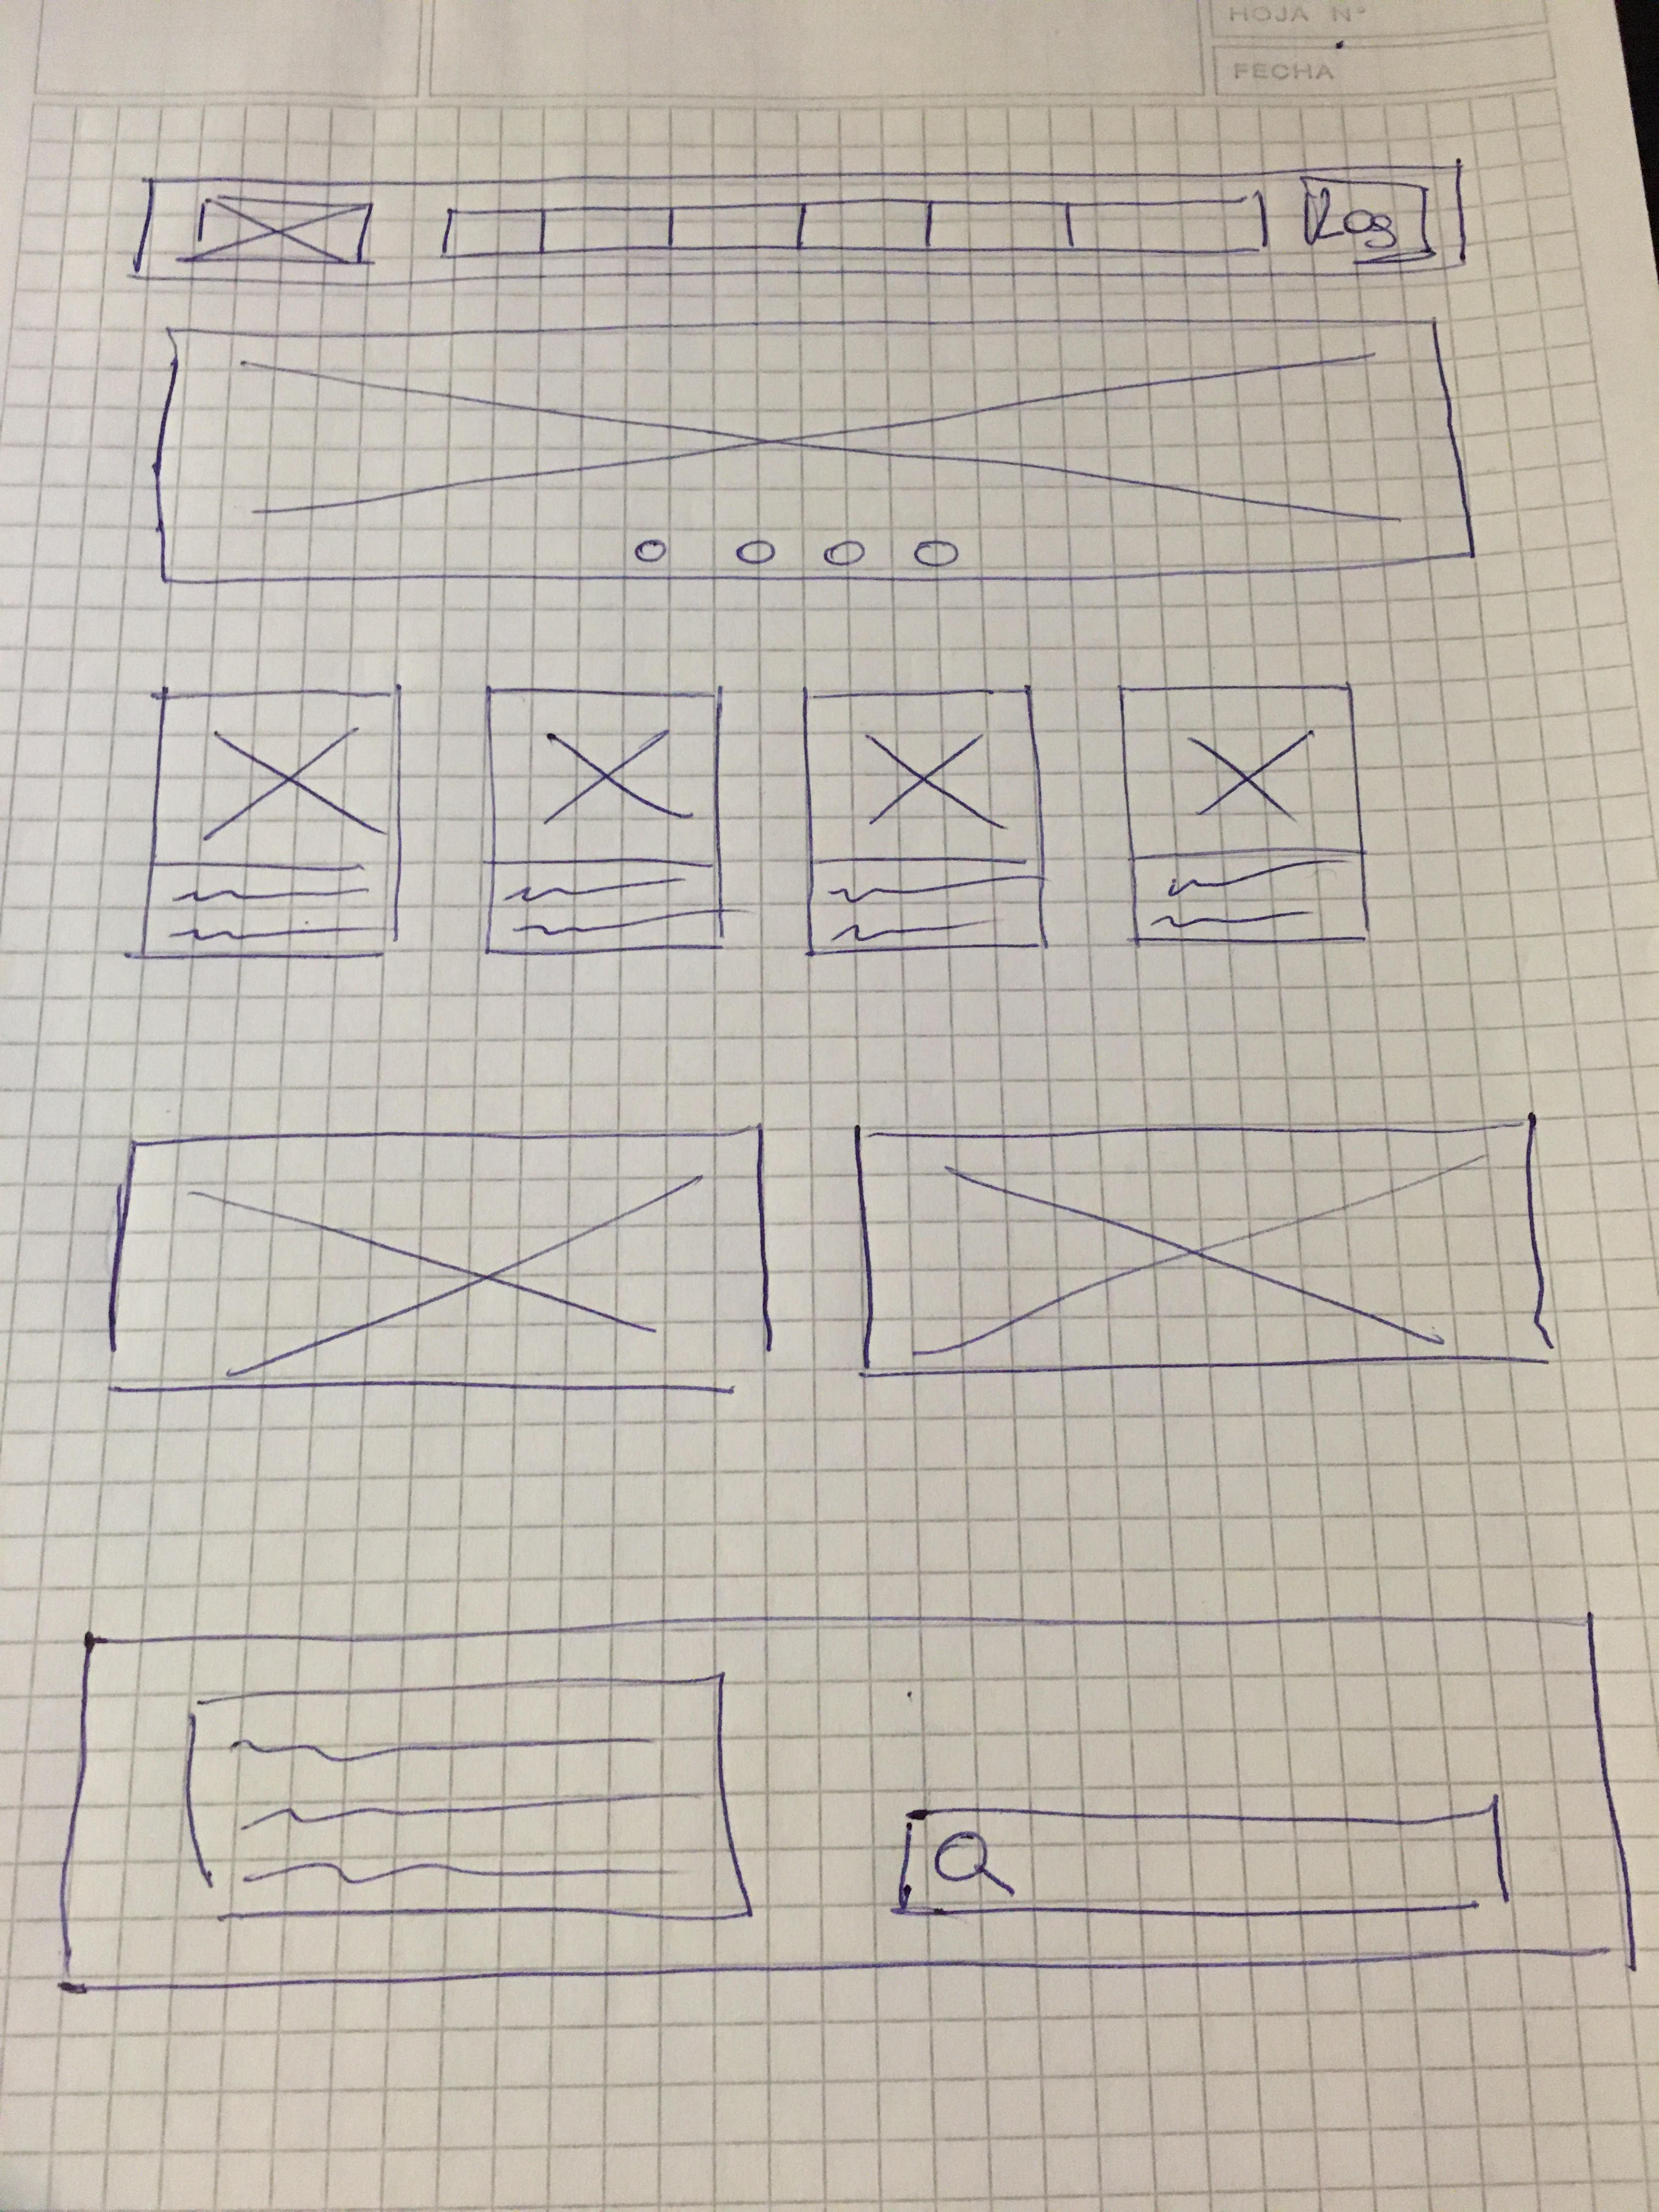 HOJA N°
FECHA
Log